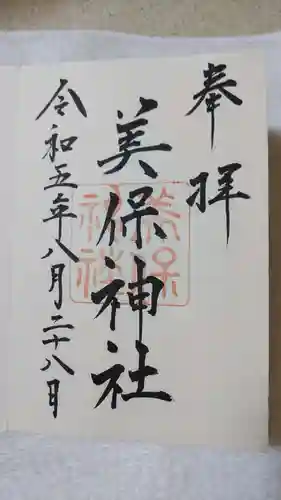 奉拝
美保神社
令和五年八月二十八日